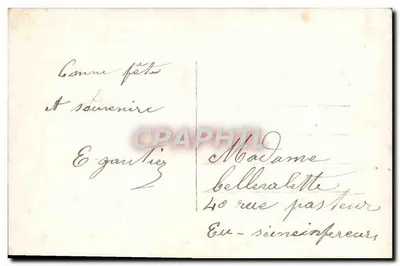 Bonne fête
et souvenire
E. gautiez
CPAPHIL
Madame
bellevalette
40 rue pasteur
Eu - seineinfereur